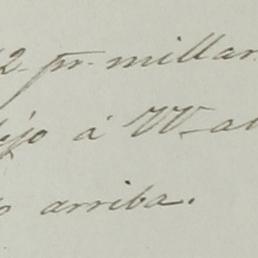 2 pr. millar
á VV. a
arriba.